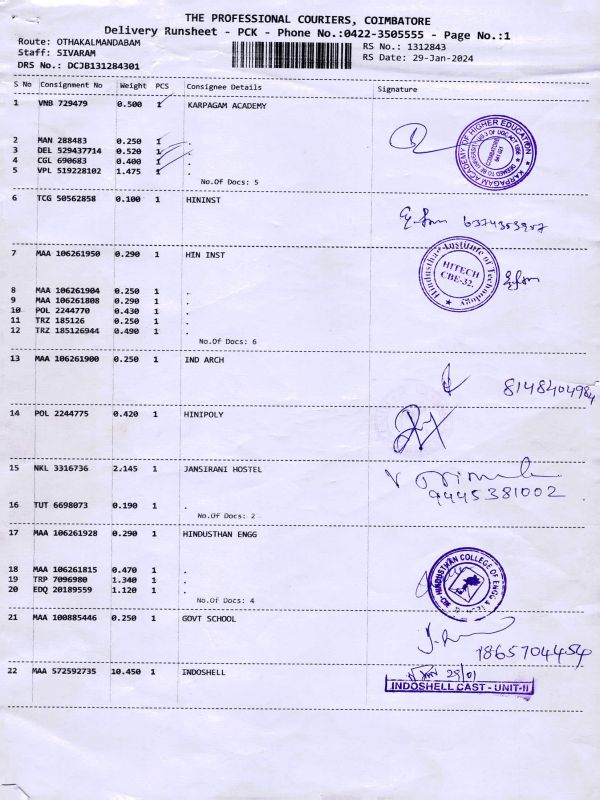 THE PROFESSIONAL COURIERS, COIMBATORE
Delivery Runsheet - PCK - Phone No.:0422-3505555 - Page No.:1
Route: OTHAKALMANDABAM
RS No.: 1312843
Staff: SIVARAM
RS Date: 29-Jan-2024
DRS No.: DCJB131284301
S No Consignment No Weight PCS Consignee Details Signature
1 VNB 729479 0.500 1 KARPAGAM ACADEMY
2 MAN 288483 0.250 1 .
3 DEL 529437714 0.520 1 .
4 CGL 690683 0.400 1 .
5 VPL 519228102 1.475 1 .
No.Of Docs: 5
KARPAGAM ACADEMY OF HIGHER EDUCATION
6 TCG 50562858 0.100 1 HININST
7 MAA 106261950 0.290 1 HIN INST
8 MAA 106261904 0.250 1 .
9 MAA 106261808 0.290 1 .
10 POL 2244770 0.430 1 .
11 TRZ 185126 0.250 1 .
12 TRZ 185126944 0.490 1 .
No.Of Docs: 6
Hindusthan Institute of Technology
HITECH
CBE-32.
13 MAA 106261900 0.250 1 IND ARCH
8148404984
14 POL 2244775 0.420 1 HINIPOLY
15 NKL 3316736 2.145 1 JANSIRANI HOSTEL
9445381002
16 TUT 6698073 0.190 1 .
No.Of Docs: 2
17 MAA 106261928 0.290 1 HINDUSTHAN ENGG
18 MAA 106261815 0.470 1 .
19 TRP 7096980 1.340 1 .
20 EDQ 20189559 1.120 1 .
No.Of Docs: 4
HINDUSTHAN COLLEGE OF ENGG
21 MAA 100885446 0.250 1 GOVT SCHOOL
1865704454
22 MAA 572592735 10.450 1 INDOSHELL
29/01
INDOSHELL CAST - UNIT-II